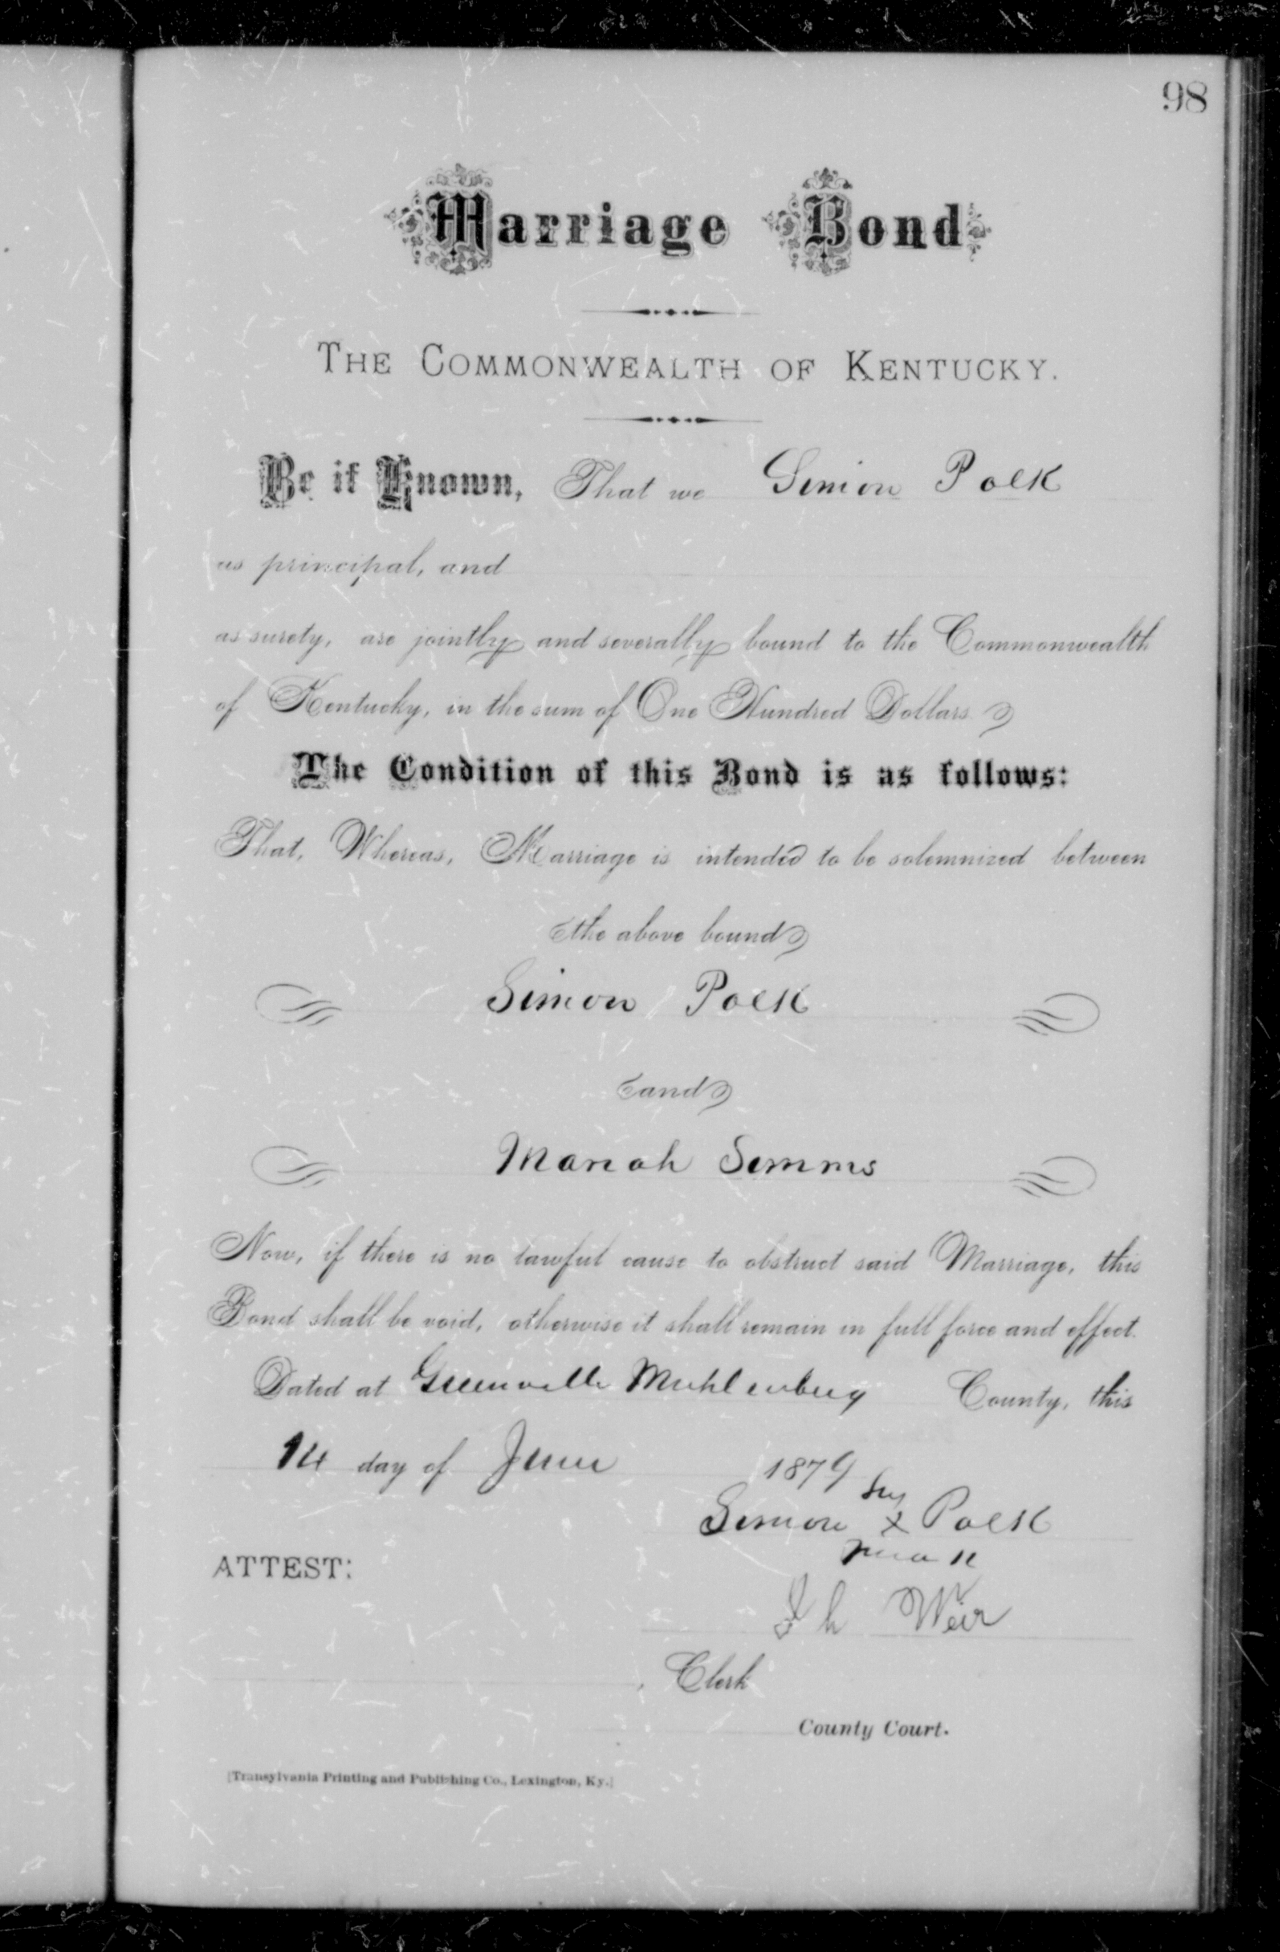 98
Marriage Bond
THE COMMONWEALTH OF KENTUCKY.
Be it Known, That we Simon Polk
as principal, and
as surety, are jointly and severally bound to the Commonwealth
of Kentucky, in the sum of One Hundred Dollars
The Condition of this Bond is as follows:
That, Whereas, Marriage is intended to be solemnized between
the above bound
Simon Polk
and
Mariah Simms
Now, if there is no lawful cause to obstruct said Marriage, this
Bond shall be void, otherwise it shall remain in full force and effect.
Dated at Greenville Muhlenburg County, this
14 day of June 1879
his
Simon x Polk
mark
ATTEST:
Weir
, Clerk
County Court.
[Transylvania Printing and Publishing Co., Lexington, Ky.]